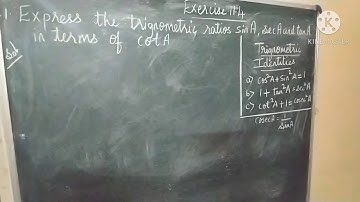 Exercise 11.4
1 Express the trignometric ratios sinA, secA and tanA
in terms of cotA
Sol
Trignometric
Identities
a) cos²A+sin²A=1
b) 1+tan²A=sec²A
c) cot²A+1=cosec²A
cosecA=1/sinA